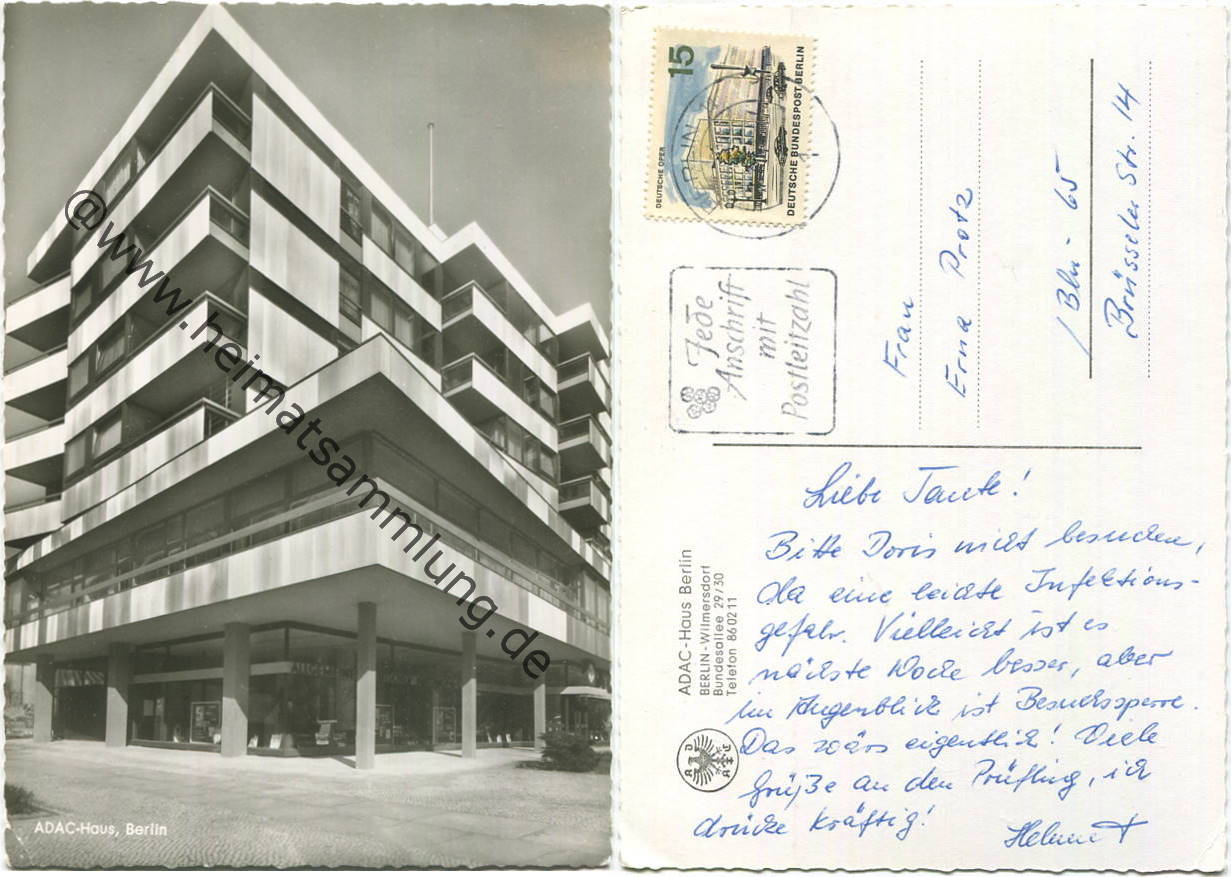 ADAC-Haus, Berlin
@www.heimatsammlung.de
15
DEUTSCHE OPER
DEUTSCHE BUNDESPOST BERLIN
BERLIN
Jede
Anschrift
mit
Postleitzahl
Frau
Erna Protz
1 Bln-65
Brüsseler Str. 14
ADAC-Haus Berlin
BERLIN-Wilmersdorf
Bundesallee 29/30
Telefon 86 02 11
ADAC
Liebe Tante!
Bitte Doris nicht besuchen,
da eine leichte Infektions-
gefahr. Vielleicht ist es
nächste Woche besser, aber
im Augenblick ist Besuchssperre.
Das wärs eigentlich! Viele
Grüße an den Prüfling, ich
drücke kräftig!
Helmut